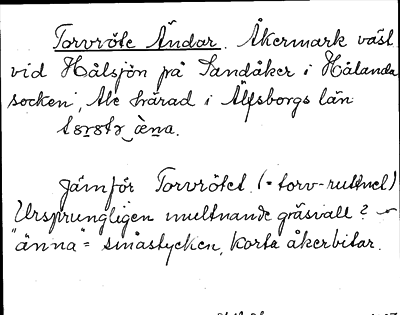 Torvröte Ändar. Åkermark väst
vid Hålsjön på Sandåker i Hålanda
socken, Ale härad i Älfsborgs län
Jämför Torvrötet (= torv-ruttnel)
Ursprungligen multnande gräsvall?
"änna" = småstycken, korta åkerbitar.